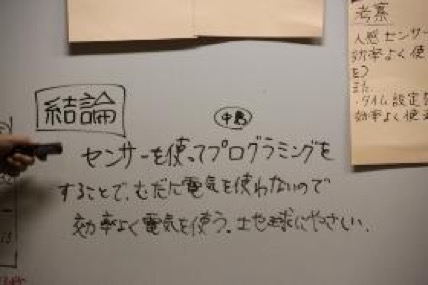 結論
中島
センサーを使ってプログラミングを
することで、むだに電気を使わないので
効率よく電気を使う。土地球にやさしい、
考案
人感センサー
効率よく使
また
・タイム設定
効率よく使